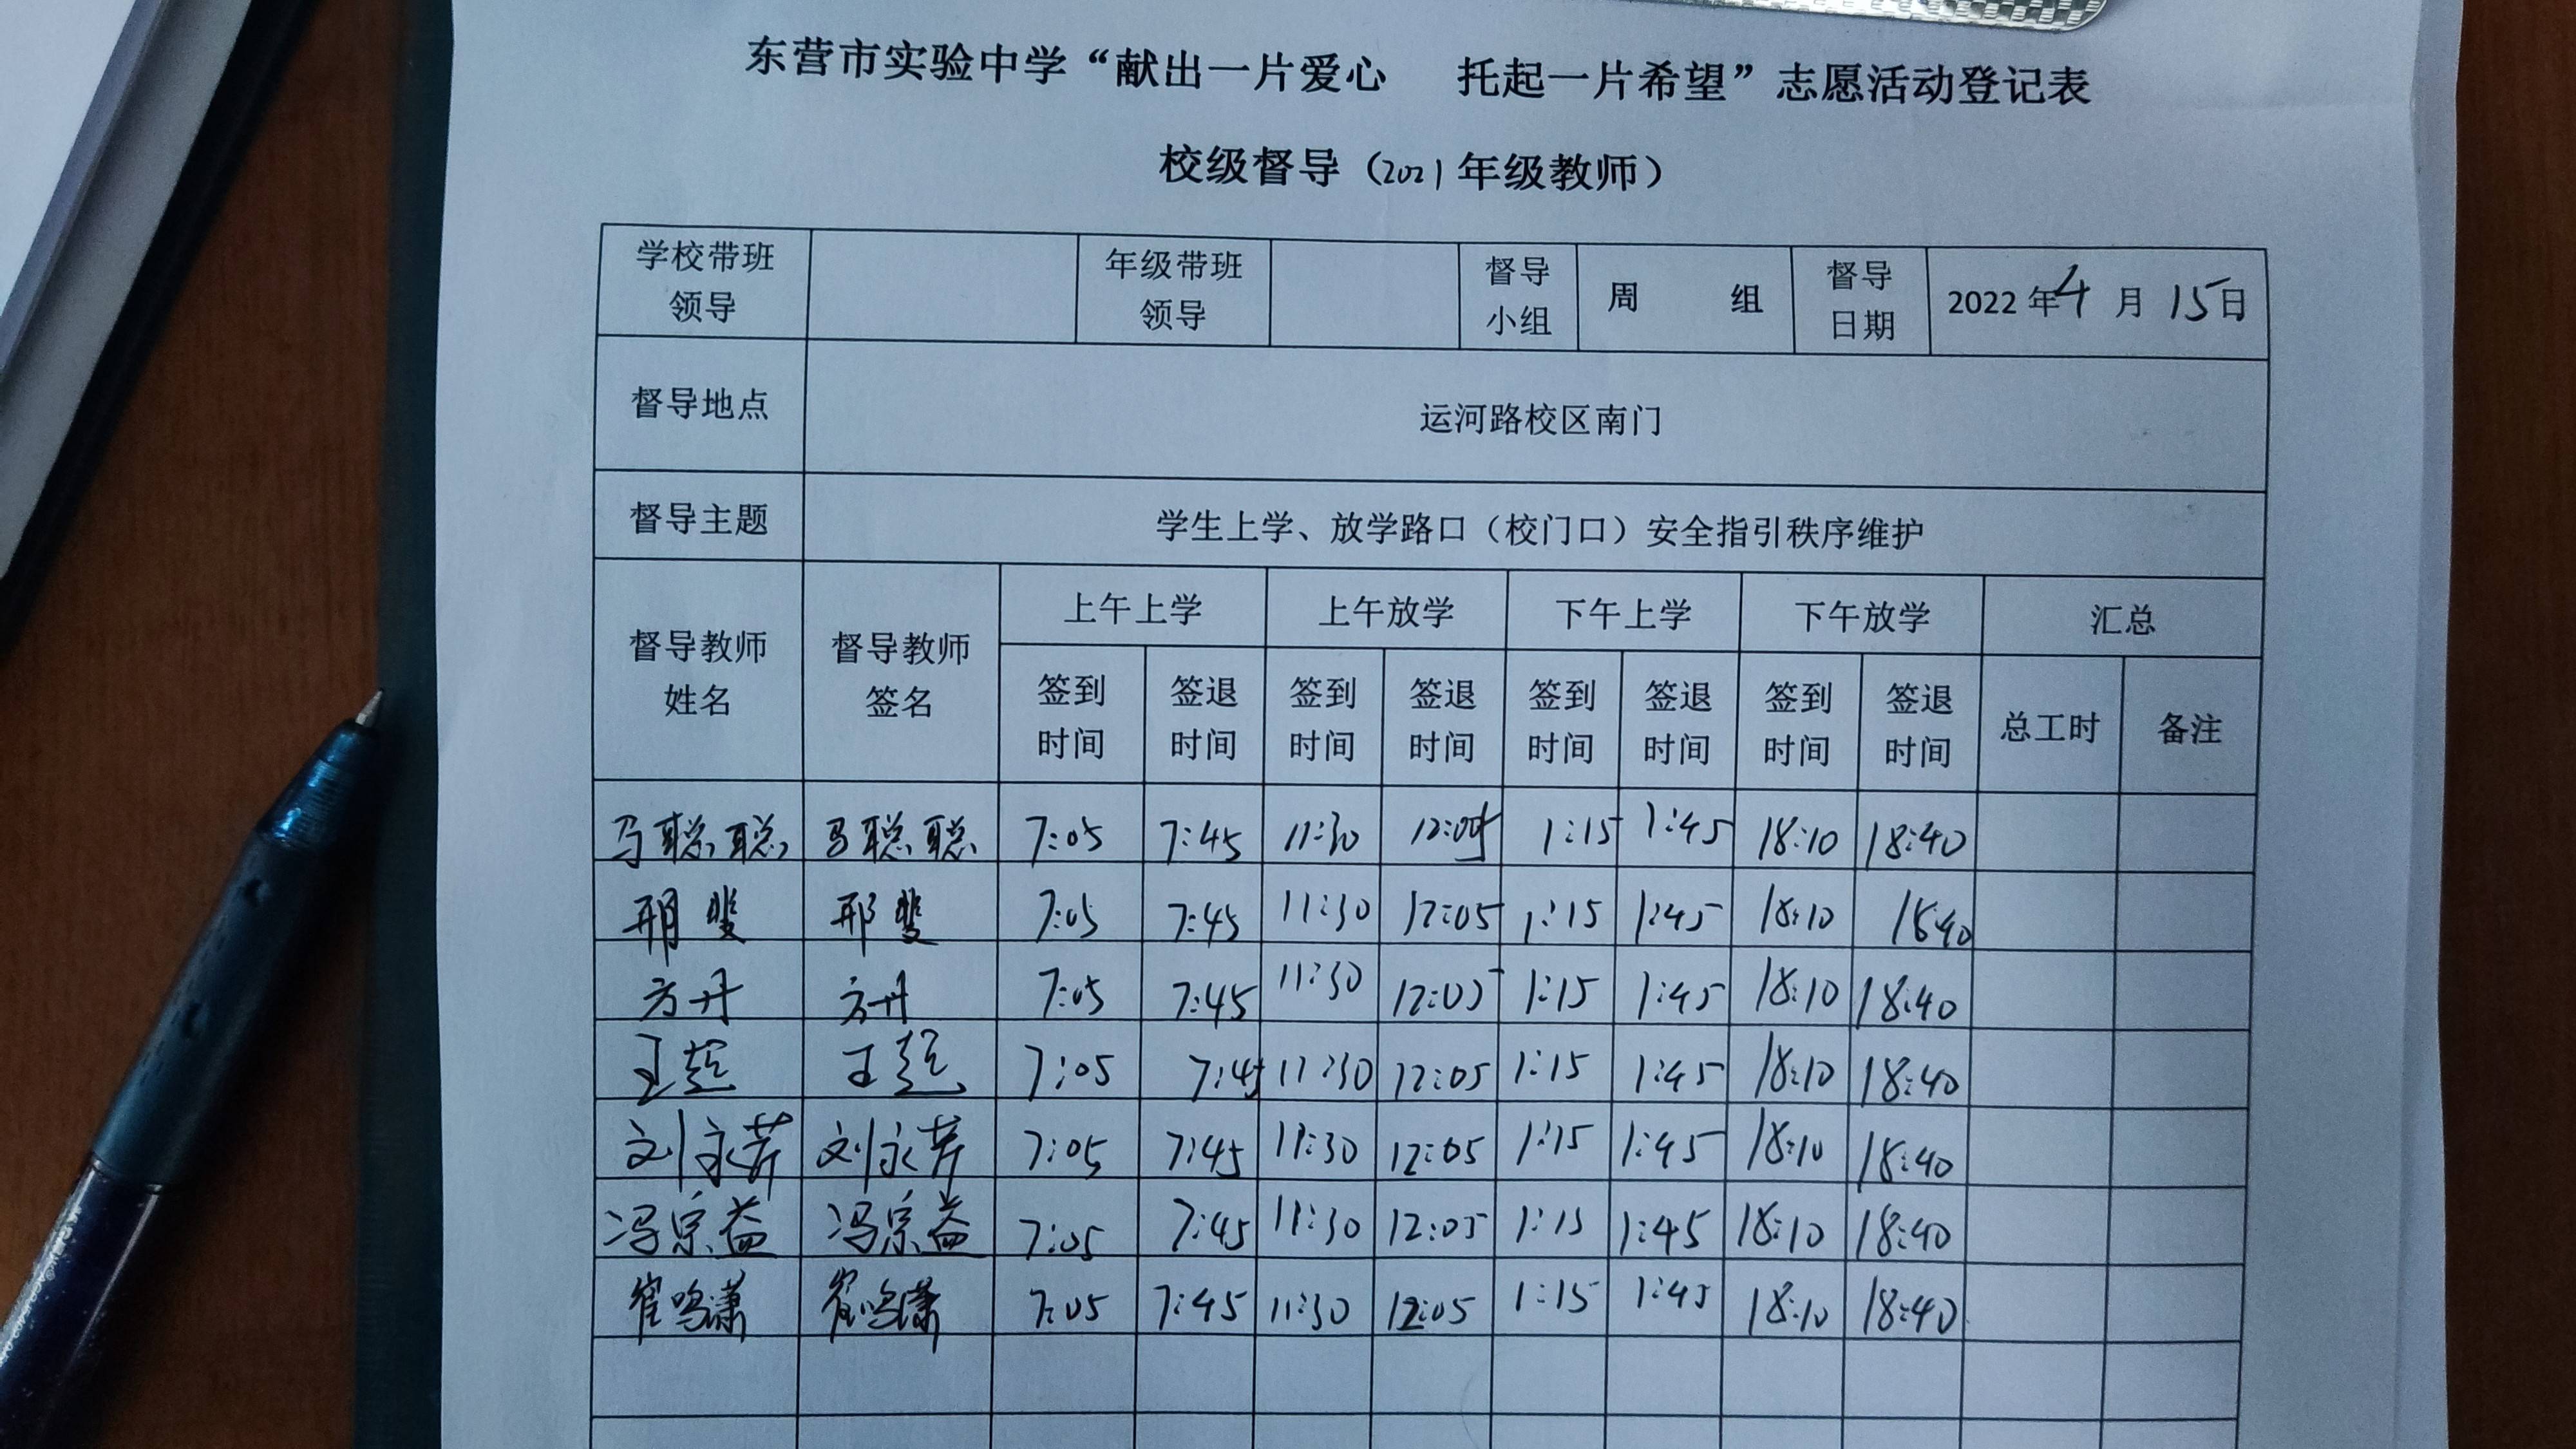 东营市实验中学“献出一片爱心 托起一片希望”志愿活动登记表
校级督导（2021年级教师）
学校带班领导 年级带班领导 督导小组 周 组 督导日期 2022年4月15日
督导地点 运河路校区南门
督导主题 学生上学、放学路口（校门口）安全指引秩序维护
督导教师姓名 督导教师签名 上午上学 上午放学 下午上学 下午放学 汇总
签到时间 签退时间 签到时间 签退时间 签到时间 签退时间 签到时间 签退时间 总工时 备注
马聪聪 马聪聪 7:05 7:45 11:30 12:05 1:15 1:45 18:10 18:40
邢斐 邢斐 7:05 7:45 11:30 12:05 1:15 1:45 18:10 18:40
方丹 方丹 7:05 7:45 11:30 12:05 1:15 1:45 18:10 18:40
王 王 7:05 7:45 11:30 12:05 1:15 1:45 18:10 18:40
刘永芹 刘永芹 7:05 7:45 11:30 12:05 1:15 1:45 18:10 18:40
冯宗益 冯宗益 7:05 7:45 11:30 12:05 1:15 1:45 18:10 18:40
崔鸣潇 崔鸣潇 7:05 7:45 11:30 12:05 1:15 1:45 18:10 18:40